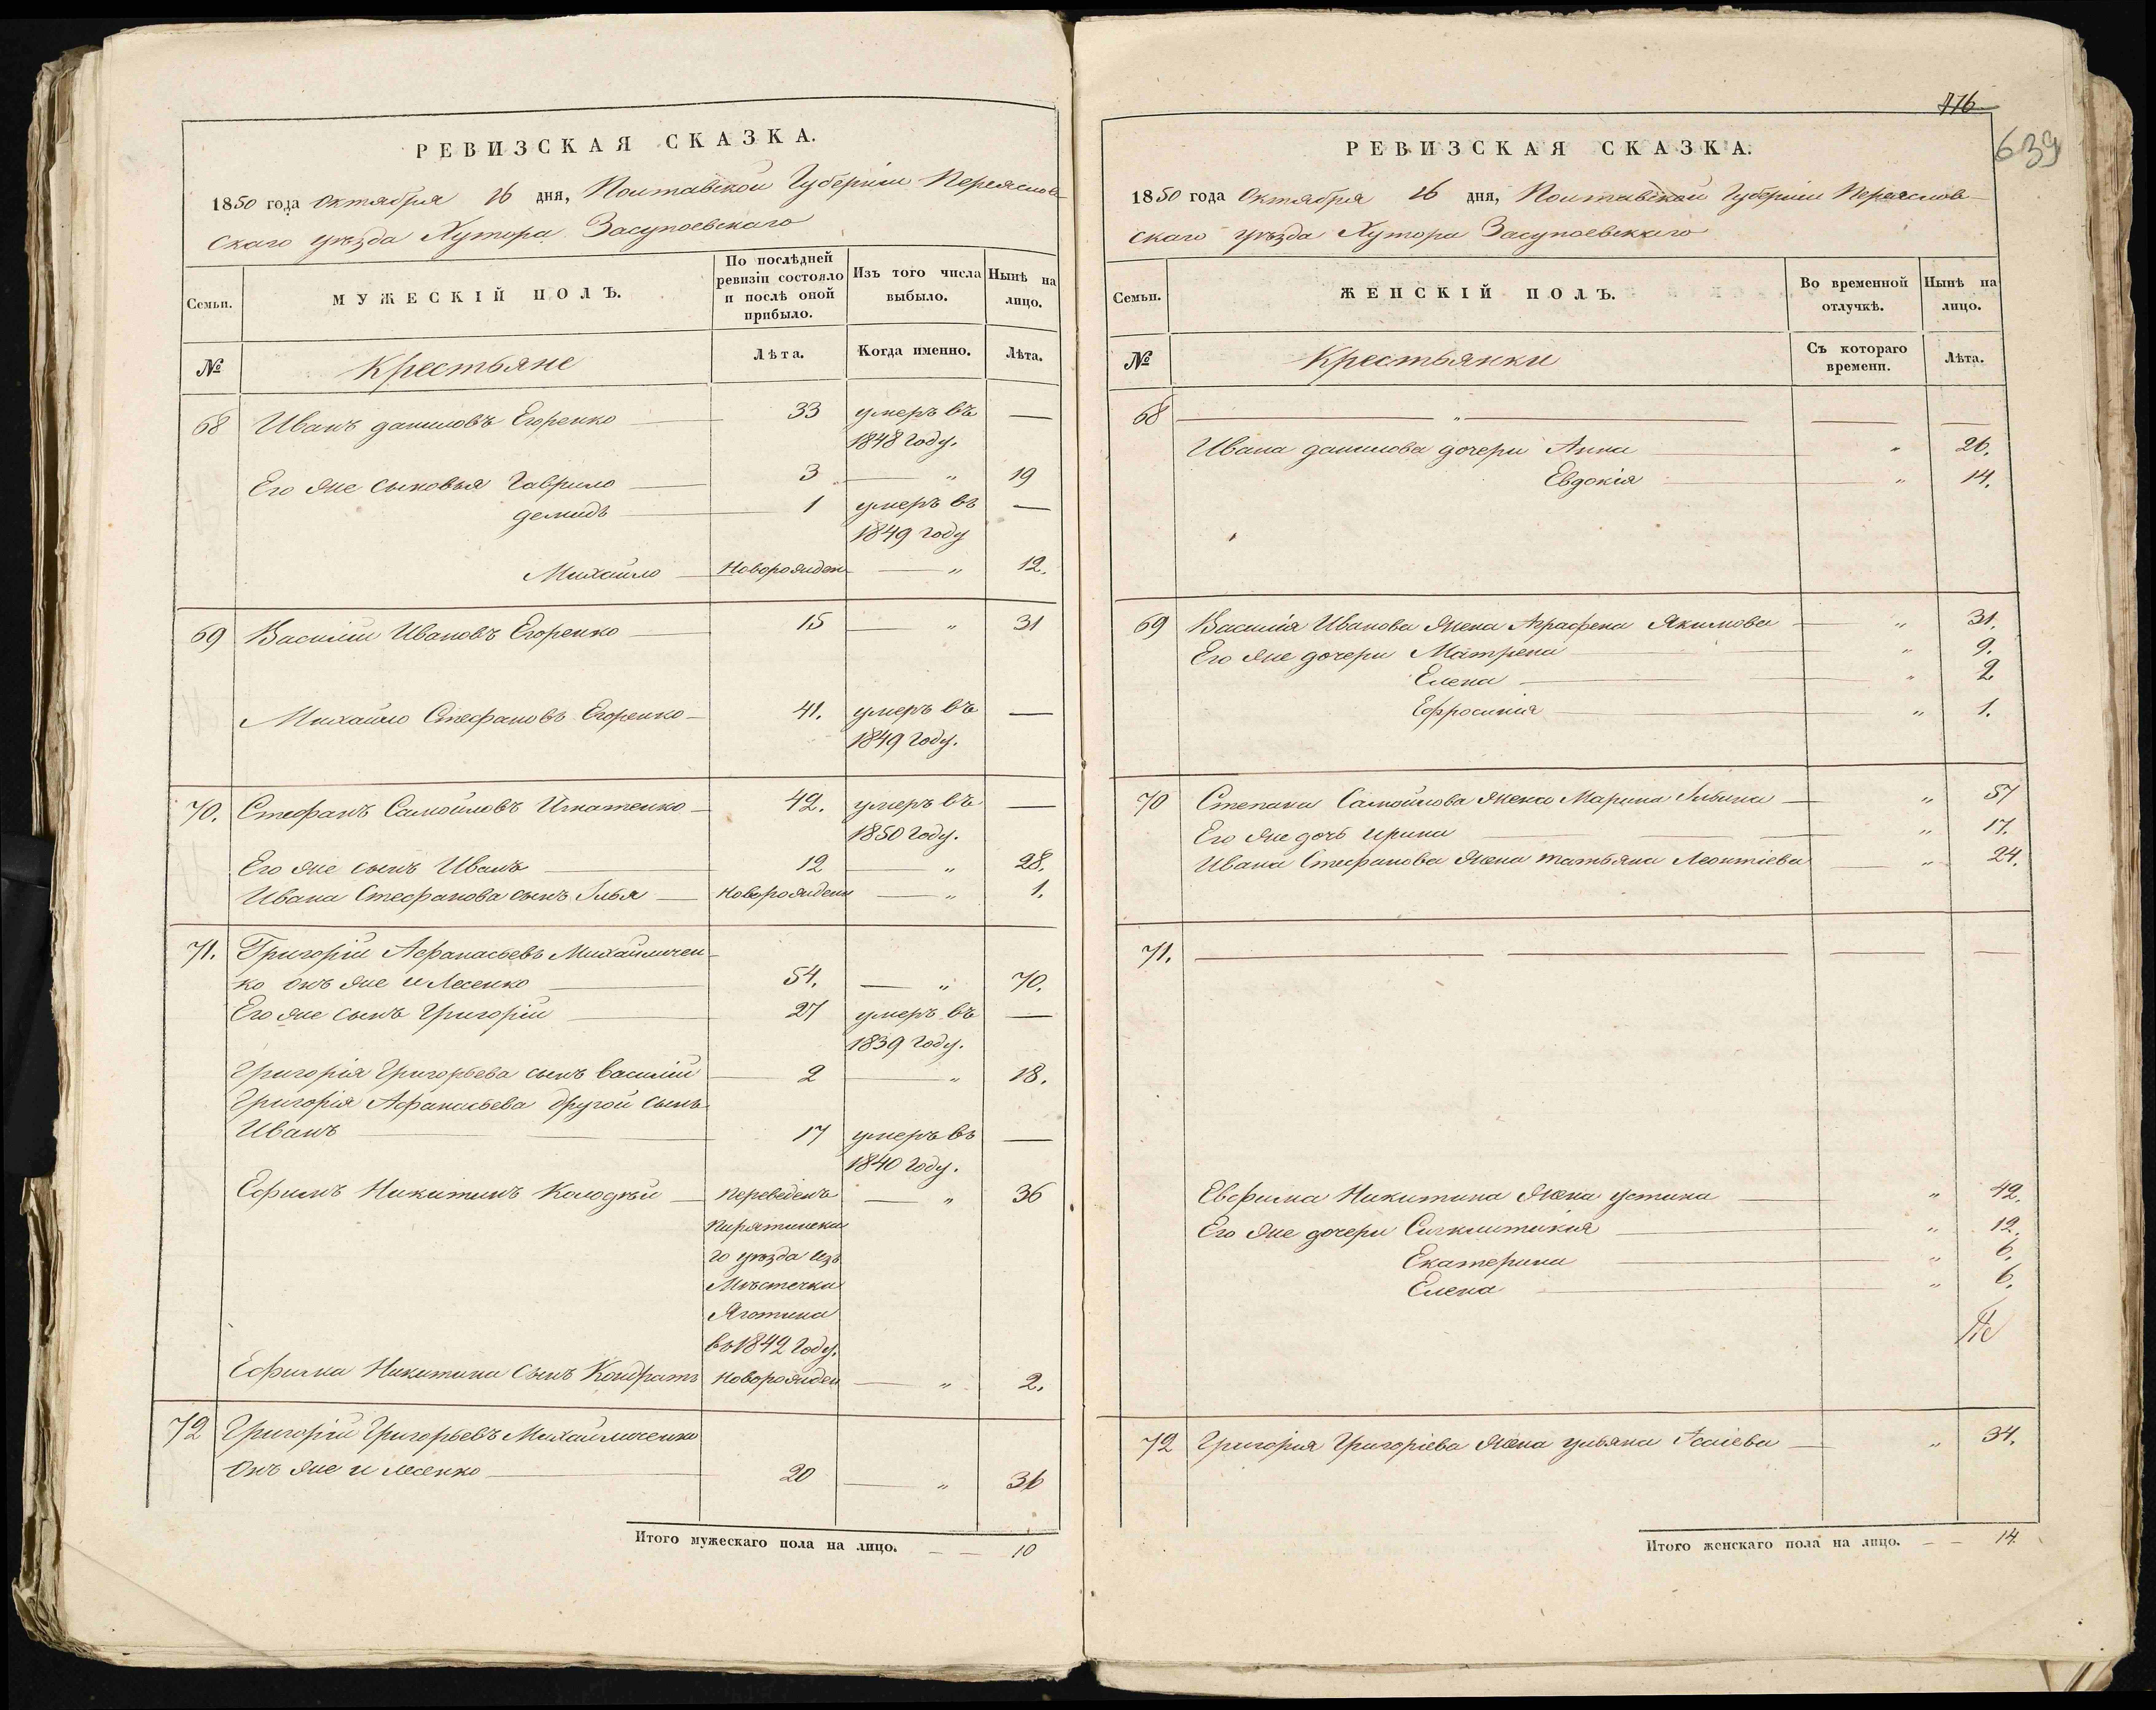 РЕВИЗСКАЯ СКАЗКА.
1850 года октября 16 дня, Полтавской Губерніи Переяслов-
скаго уѣзда Хутора Засупоевскаго
Семьи. МУЖЕСКІЙ ПОЛЪ. По послѣдней ревизіи состояло и послѣ оной прибыло. Изъ того числа выбыло. Нынѣ на лицо.
№ Крестьяне Лѣта. Когда именно. Лѣта.
68 Иванъ даниловъ Егоренко 33 умеръ въ —
1848 году.
Его же сыновья Гаврило 3 — „ 19
демидъ 1 умеръ въ —
1849 году
Михайло Новорожден — „ 12.
69 Василій Ивановъ Егоренко 15 — „ 31
Михайло Стефановъ Егоренко 41. умеръ въ —
1849 году.
70. Стефанъ Самойловъ Игнатенко 42. умеръ въ —
1850 году.
Его же сынъ Иванъ 12 — „ 28.
Ивана Стефанова сынъ Илья Новорожденъ — „ 1.
71. Григорій Афанасьевъ Михайличен-
ко онъ же и Лесенко 54. — „ 70.
Его же сынъ Григорій 27 умеръ въ —
1839 году.
Григорія Григорьева сынъ василій 2 — „ 18.
Григорія Афанасьева другой сынъ
Иванъ 17 умеръ въ —
1840 году.
Ефимъ Никитинъ Колодѣй переведенъ — „ 36
Пирятинска
го уѣзда изъ
Мѣстечка
Яготина
въ 1842 году.
Ефима Никитина сынъ Кондратъ новорожден — „ 2.
72 Григорій Григорьевъ Михайличенко
онъ же и лесенко 20 — „ 36
Итого мужескаго пола на лицо. — — 10
776
639
РЕВИЗСКАЯ СКАЗКА.
1850 года Октября 16 дня, Полтавской Губерніи Переяслов-
скаго уѣзда Хутора Засупоевскаго
Семьи. ЖЕНСКІЙ ПОЛЪ. Во временной отлучкѣ. Нынѣ на лицо.
№ Крестьянки Съ котораго времени. Лѣта.
68 — „ — — —
Ивана данилова дочери Анна „ 26.
Евдокія „ 14.
69 Василія Иванова жена Аграфена Якимова „ 31.
Его же дочери Матрена „ 9.
Елена „ 2
Ефросинія „ 1.
70 Степана Самойлова жена Марина Ильина „ 57
Его же дочь ирина „ 17.
Ивана Стефанова жена татьяна Леонтіева „ 24.
71. — — — —
Евфима Никитина жена устина „ 42.
Его же дочери Сигклитикія „ 12.
Екатерина „ 6.
Елена „ 6.
72 Григорія Григоріева жена ульяна Исаіева „ 34.
Итого женскаго пола на лицо. — — 14.